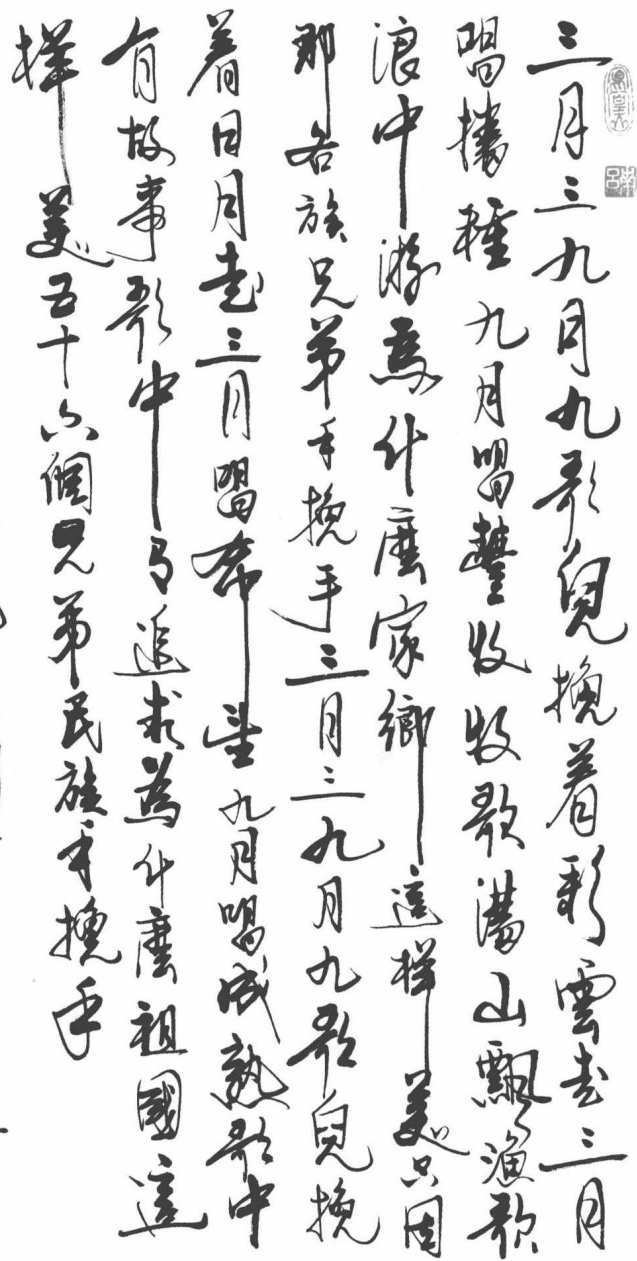 三月三九月九歌兒挽着彩雲走三月
唱播種九月唱豐收牧歌滿山飄漁歌
浪中游為什麼家鄉這樣美只因
那各族兄弟手挽手三月三九月九歌兒挽
着日月走三月唱希望九月唱成熟歌中
有故事歌中有追求為什麼祖國這
樣美五十六個兄弟民族手挽手